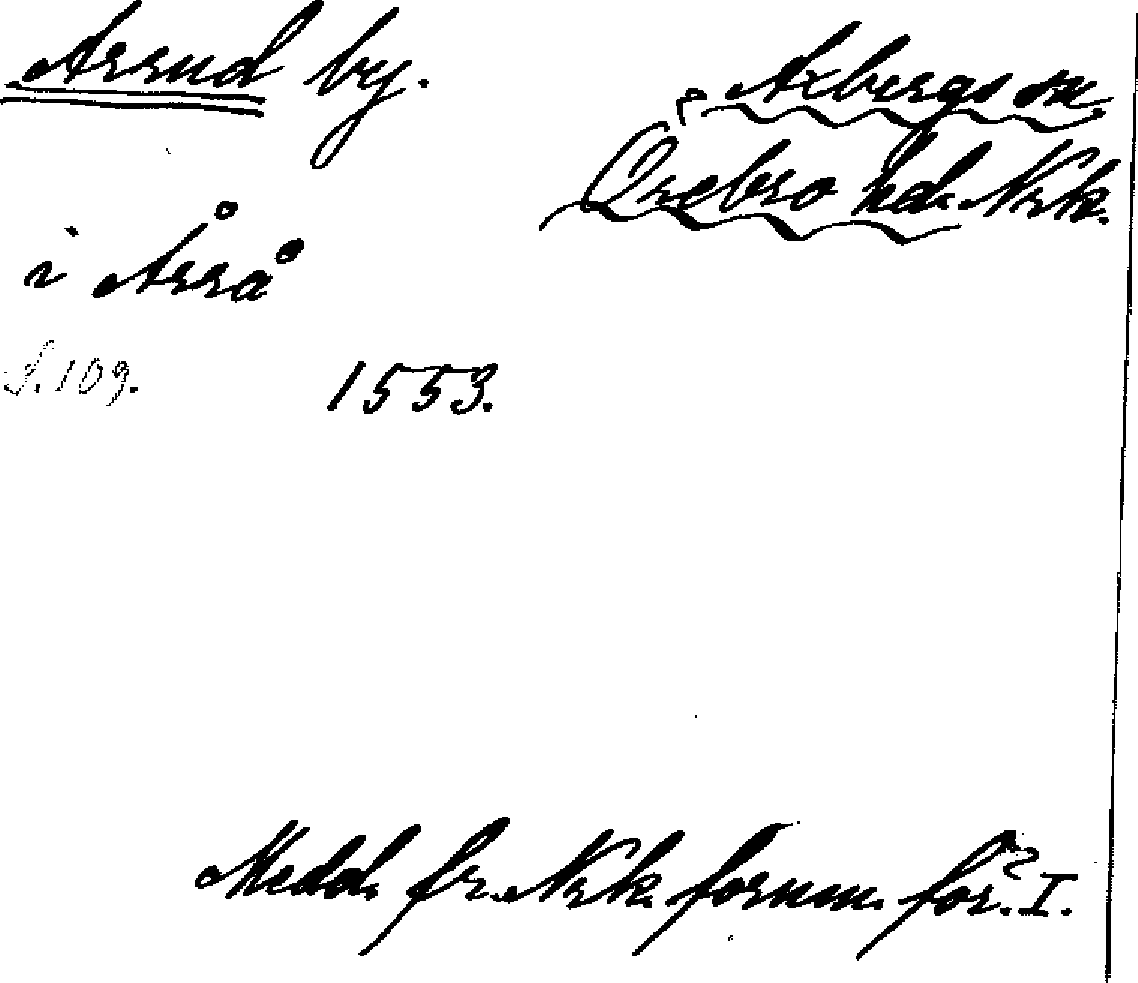 Arrud by.
Axbergs sn.
Örebro hd. Nrk.
i Årrå
S. 109.
1553.
Medd. fr. Nrk. fornm. för. I.